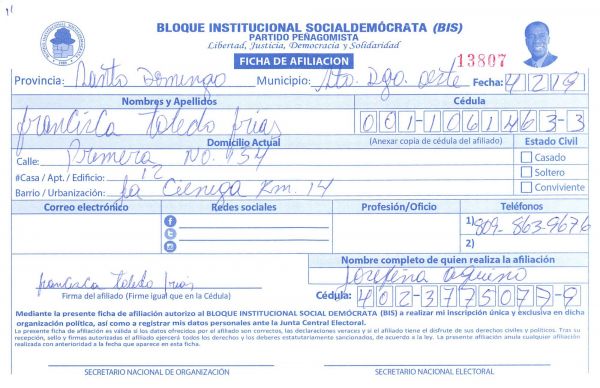 BLOQUE INSTITUCIONAL SOCIALDEMÓCRATA (BIS)
PARTIDO PEÑAGOMISTA
Libertad, Justicia, Democracia y Solidaridad
FICHA DE AFILIACION
13807
Provincia: Santo Domingo Municipio: Sto. Dgo. oeste Fecha: 4/2/19
Nombres y Apellidos Cédula
francisca Toledo frias 001-1061463-3
Domicilio Actual (Anexar copia de cédula del afiliado) Estado Civil
Calle: Primera No. 134 Casado
#Casa / Apt. / Edificio: 12 Soltero
Barrio / Urbanización: La Cienega Km. 14 Conviviente
Correo electrónico Redes sociales Profesión/Oficio Teléfonos
1) 809-863-9676
2)
Nombre completo de quien realiza la afiliación
francisca toledo frias Josefina Aquino
Firma del afiliado (Firme igual que en la Cédula) Cédula: 402-3775077-9
Mediante la presente ficha de afiliación autorizo al BLOQUE INSTITUCIONAL SOCIAL DEMÓCRATA (BIS) a realizar mi inscripción única y exclusiva en dicha
organización política, así como a registrar mis datos personales ante la Junta Central Electoral.
La presente ficha de afiliación es válida si los datos ofrecidos por el afiliado son correctos, las declaraciones veraces y si el afiliado tiene el disfrute de sus derechos civiles y políticos. Tras su
recepción, sello y firmas autorizadas el afiliado ejercerá todos los derechos y los deberes estatutariamente sancionados, de acuerdo a la ley. La presente afiliación anula cualquier afiliación
realizada con anterioridad a la fecha que aparece en esta ficha.
SECRETARIO NACIONAL DE ORGANIZACIÓN SECRETARIO NACIONAL ELECTORAL